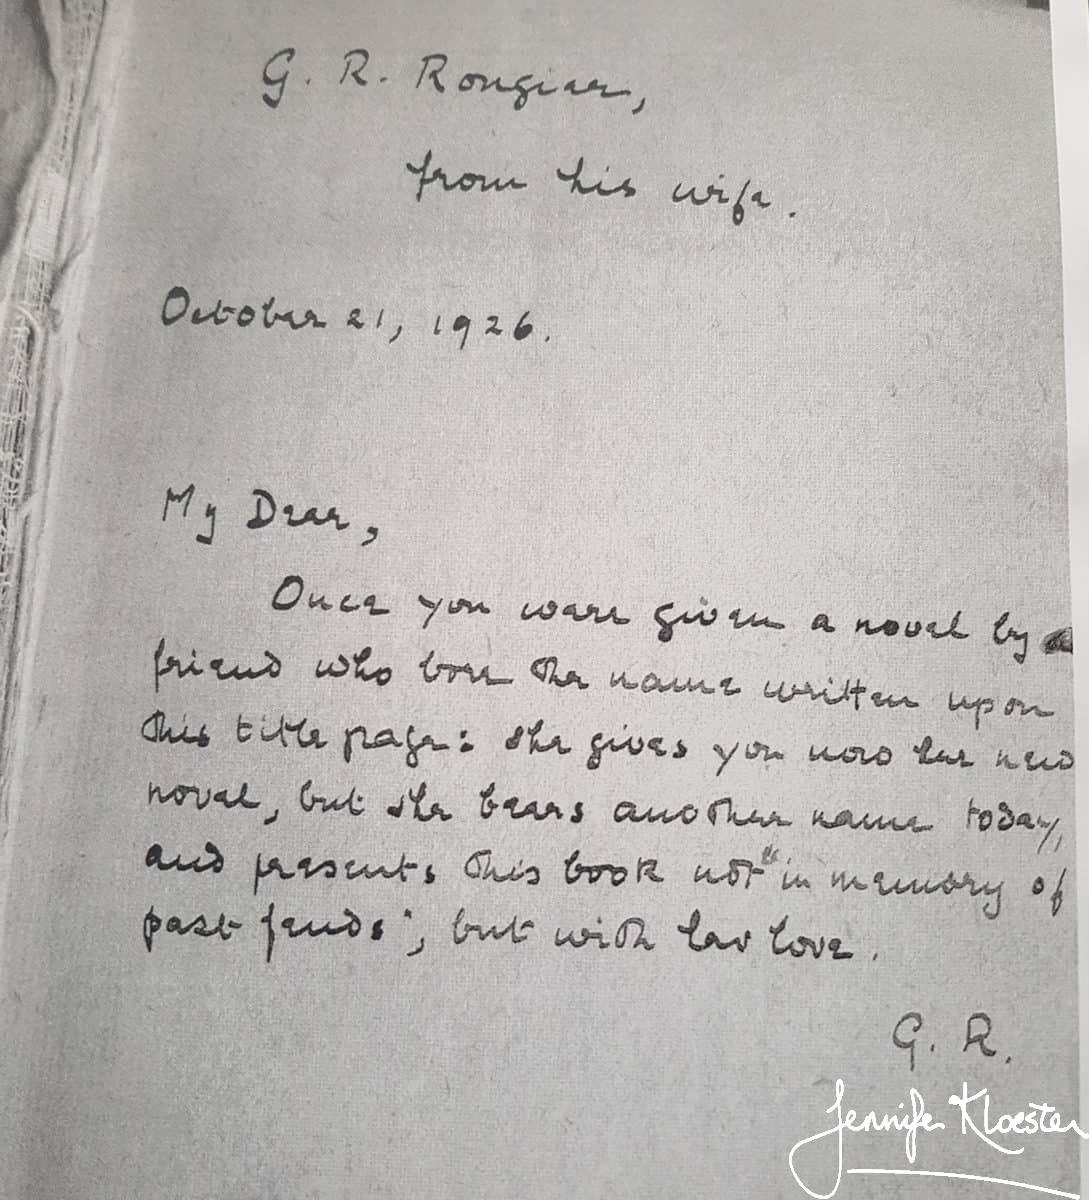 G. R. Rougier,
from his wife.
October 21, 1926.
My Dear,
Once you were given a novel by a
friend who bore the name written upon
this title page: she gives you now her new
novel, but she bears another name today,
and presents this book not "in memory of
past feuds", but with her love.
G. R.
Jennifer Kloester